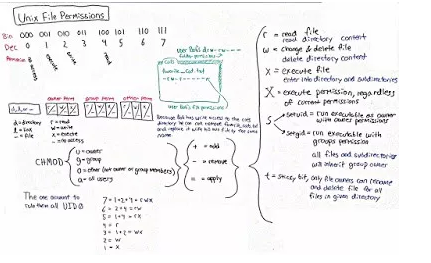 Unix File Permissions
Bin 000 001 010 011 100 101 110 111
Dec 0 1 2 3 4 5 6 7
no access
execute
write
read
User Bob's
favorite_cat.txt
User Bob's file permissions
Because Bob has write access to the cats
directory he can
and replace it with his own file by the same
name
owner perm group perm other perm
d, l, or -
d = directory
l = link
- = file
r = read
w = write
x = execute
- = no access
CHMOD
u = owner
g = group
o = other (not owner or group members)
a = all users
+ = add
- = remove
= = apply
The one account to
rule them all UID 0
7 = 1+2+4 = rwx
6 = 2+4 = rw
5 = 1+4 = rx
4 = r
3 = 1+2 = wx
2 = w
1 = x
r = read file
read directory content
w = change & delete file
delete directory content
x = execute file
enter into directory and subdirectories
X = execute permission, regardless
of current permissions
s
setuid = run executable as owner
with owners permissions
setgid = run executable with
groups permission
all files and subdirectories
will inherit group owner
t = sticky bit, only file owners can rename
and delete file for all
files in given directory